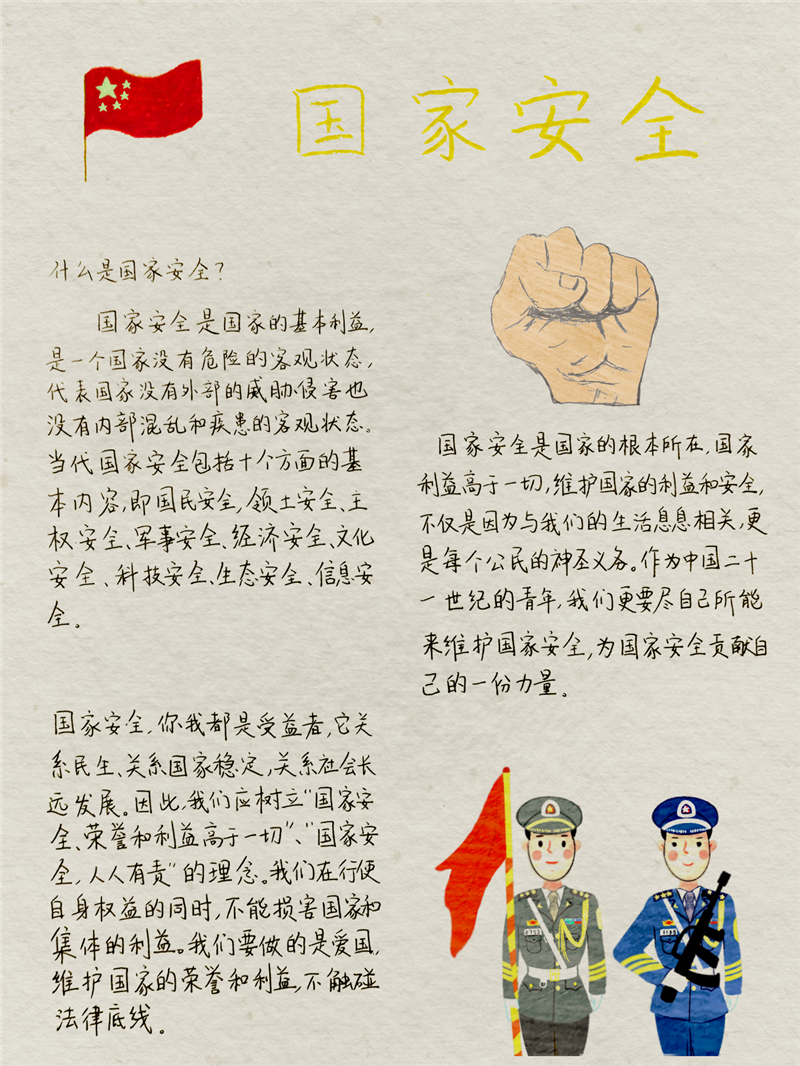 国家安全
什么是国家安全?
国家安全是国家的基本利益,
是一个国家没有危险的客观状态,
代表国家没有外部的威胁侵害也
没有内部混乱和疾患的客观状态。
当代国家安全包括十个方面的基
本内容,即国民安全,领土安全、主
权安全、军事安全、经济安全、文化
安全、科技安全、生态安全、信息安
全。
国家安全是国家的根本所在,国家
利益高于一切,维护国家的利益和安全,
不仅是因为与我们的生活息息相关,更
是每个公民的神圣义务。作为中国二十
一世纪的青年,我们更要尽自己所能
来维护国家安全,为国家安全贡献自
己的一份力量。
国家安全,你我都是受益者,它关
系民生、关系国家稳定,关系社会长
远发展。因此,我们应树立“国家安
全、荣誉和利益高于一切”、“国家安
全,人人有责”的理念。我们在行使
自身权益的同时,不能损害国家和
集体的利益。我们要做的是爱国,
维护国家的荣誉和利益,不触碰
法律底线。